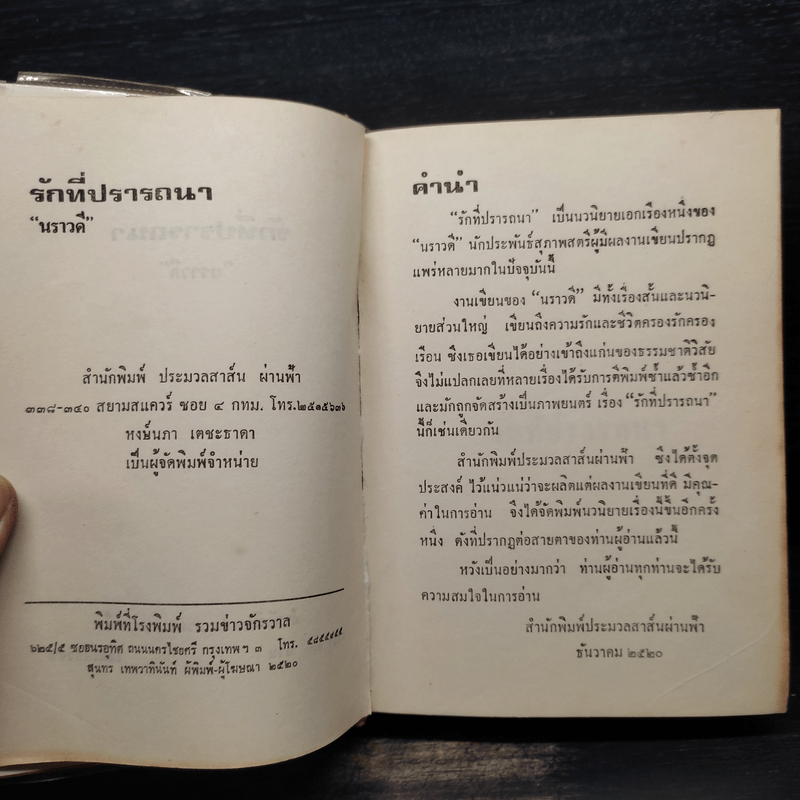 รักที่ปรารถนา
“นราวดี”
สำนักพิมพ์ ประมวลสาส์น ผ่านฟ้า
๓๓๘-๓๔๐ สยามสแควร์ ซอย ๔ กทม. โทร.๒๕๑๕๖๓๖
หงษ์นภา เตชะธาดา
เป็นผู้จัดพิมพ์จำหน่าย
พิมพ์ที่โรงพิมพ์ รวมข่าวจักรวาล
๖๒๕/๕ ซยอนรอุทิศ ถนนนครไชยศรี กรุงเทพฯ ๓ โทร.
สุนทร เทพวาทินันท์ ผู้พิมพ์-ผู้โฆษณา ๒๕๒๐
คำนำ
“รักที่ปรารถนา” เป็นนวนิยายเอกเรื่องหนึ่งของ
“นราวดี” นักประพันธ์สุภาพสตรีผู้มีผลงานเขียนปรากฏ
แพร่หลายมากในปัจจุบันนี้
งานเขียนของ “นราวดี” มีทั้งเรื่องสั้นและนวนิ-
ยายส่วนใหญ่ เขียนถึงความรักและชีวิตครองรักครอง
เรือน ซึ่งเธอเขียนได้อย่างเข้าถึงแก่นของธรรมชาติวิสัย
จึงไม่แปลกเลยที่หลายเรื่องได้รับการตีพิมพ์ซ้ำแล้วซ้ำอีก
และมักถูกจัดสร้างเป็นภาพยนตร์ เรื่อง “รักที่ปรารถนา”
นี้ก็เช่นเดียวกัน
สำนักพิมพ์ประมวลสาส์นผ่านฟ้า ซึ่งได้ตั้งจุด
ประสงค์ ไว้แน่วแน่ว่าจะผลิตแต่ผลงานเขียนที่ดี มีคุณ-
ค่าในการอ่าน จึงได้จัดพิมพ์นวนิยายเรื่องนี้ขึ้นอีกครั้ง
หนึ่ง ดังที่ปรากฏต่อสายตาของท่านผู้อ่านแล้วนี้
หวังเป็นอย่างมากว่า ท่านผู้อ่านทุกท่านจะได้รับ
ความสมใจในการอ่าน
สำนักพิมพ์ประมวลสาส์นผ่านฟ้า
ธันวาคม ๒๕๒๐